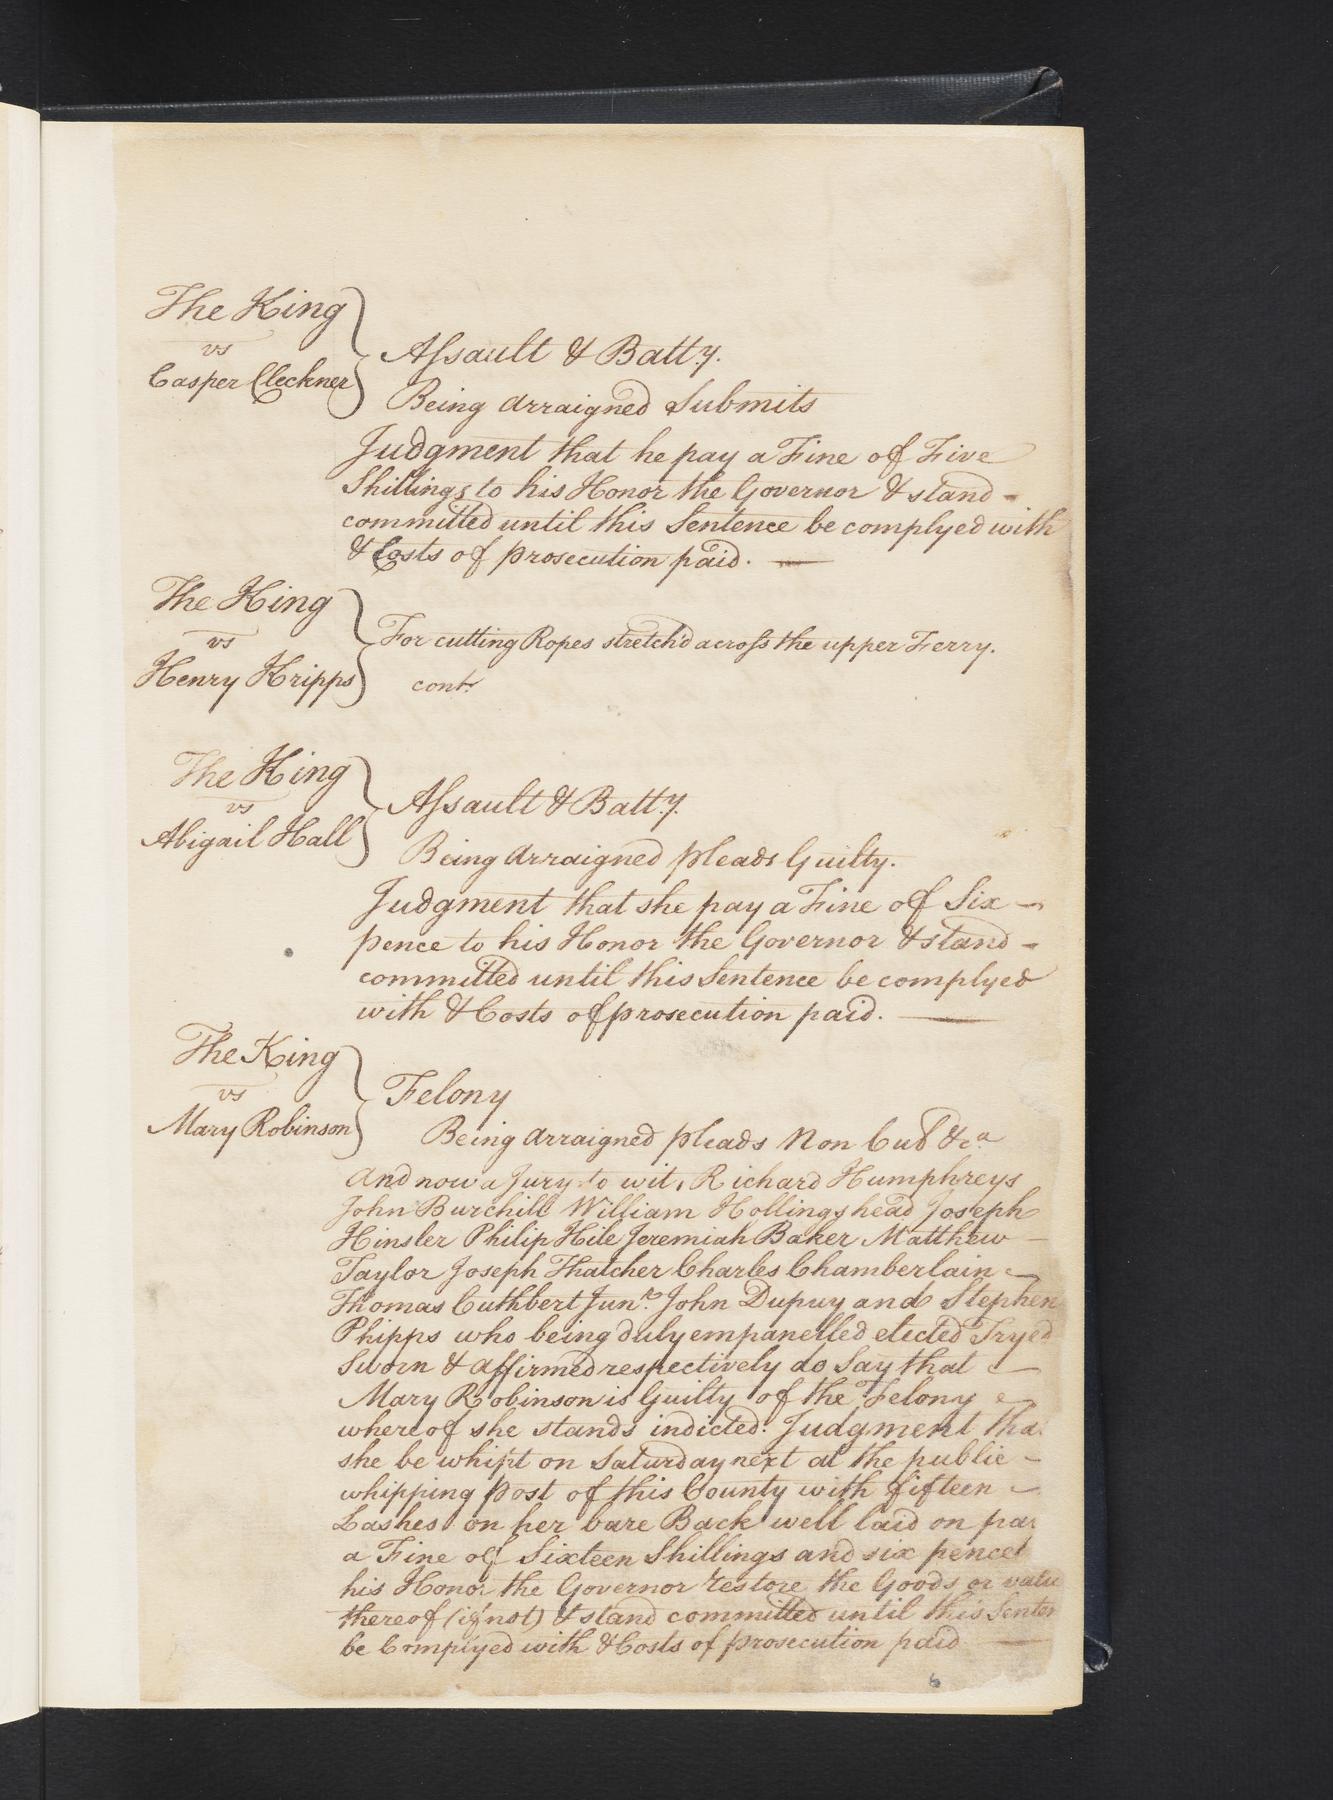 The King
vs
Casper Cleckner
Assault & Batt.y.
Being arraigned Submits
Judgment that he pay a Fine of Five
Shillings to his Honor the Governor & stand -
committed until this Sentence be complyed with
& Costs of prosecution paid. —
The King
vs
Henry Kripps
For cutting Ropes stretch'd across the upper Ferry.
cont.
The King
vs
Abigail Hall
Assault & Batt.y.
Being Arraigned pleads Guilty.
Judgment that she pay a Fine of Six -
pence to his Honor the Governor & stand -
committed until this Sentence be complyed
with & Costs of prosecution paid. —
The King
vs
Mary Robinson
Felony
Being arraigned pleads Non Cul &c.a
And now a Jury to wit, Richard Humphreys
John Burchill William Hollingshead Joseph
Hinsler Philip Hile Jeremiah Baker Matthew -
Taylor Joseph Thatcher Charles Chamberlain -
Thomas Cuthbert Jun.r John Dupuy and Stephen
Phipps who being duly empanelled elected Tryed
Sworn & affirmed respectively do Say that -
Mary Robinson is Guilty of the Felony -
whereof she stands indicted. Judgment tha
she be whipt on Saturday next at the public -
whipping post of this County with fifteen -
Lashes on her bare Back well laid on pa
a Fine of Sixteen Shillings and six pence t
his Honor the Governor restore the Goods or value
thereof (if not) & stand committed until this Senten
be Complyed with & Costs of prosecution paid —
6